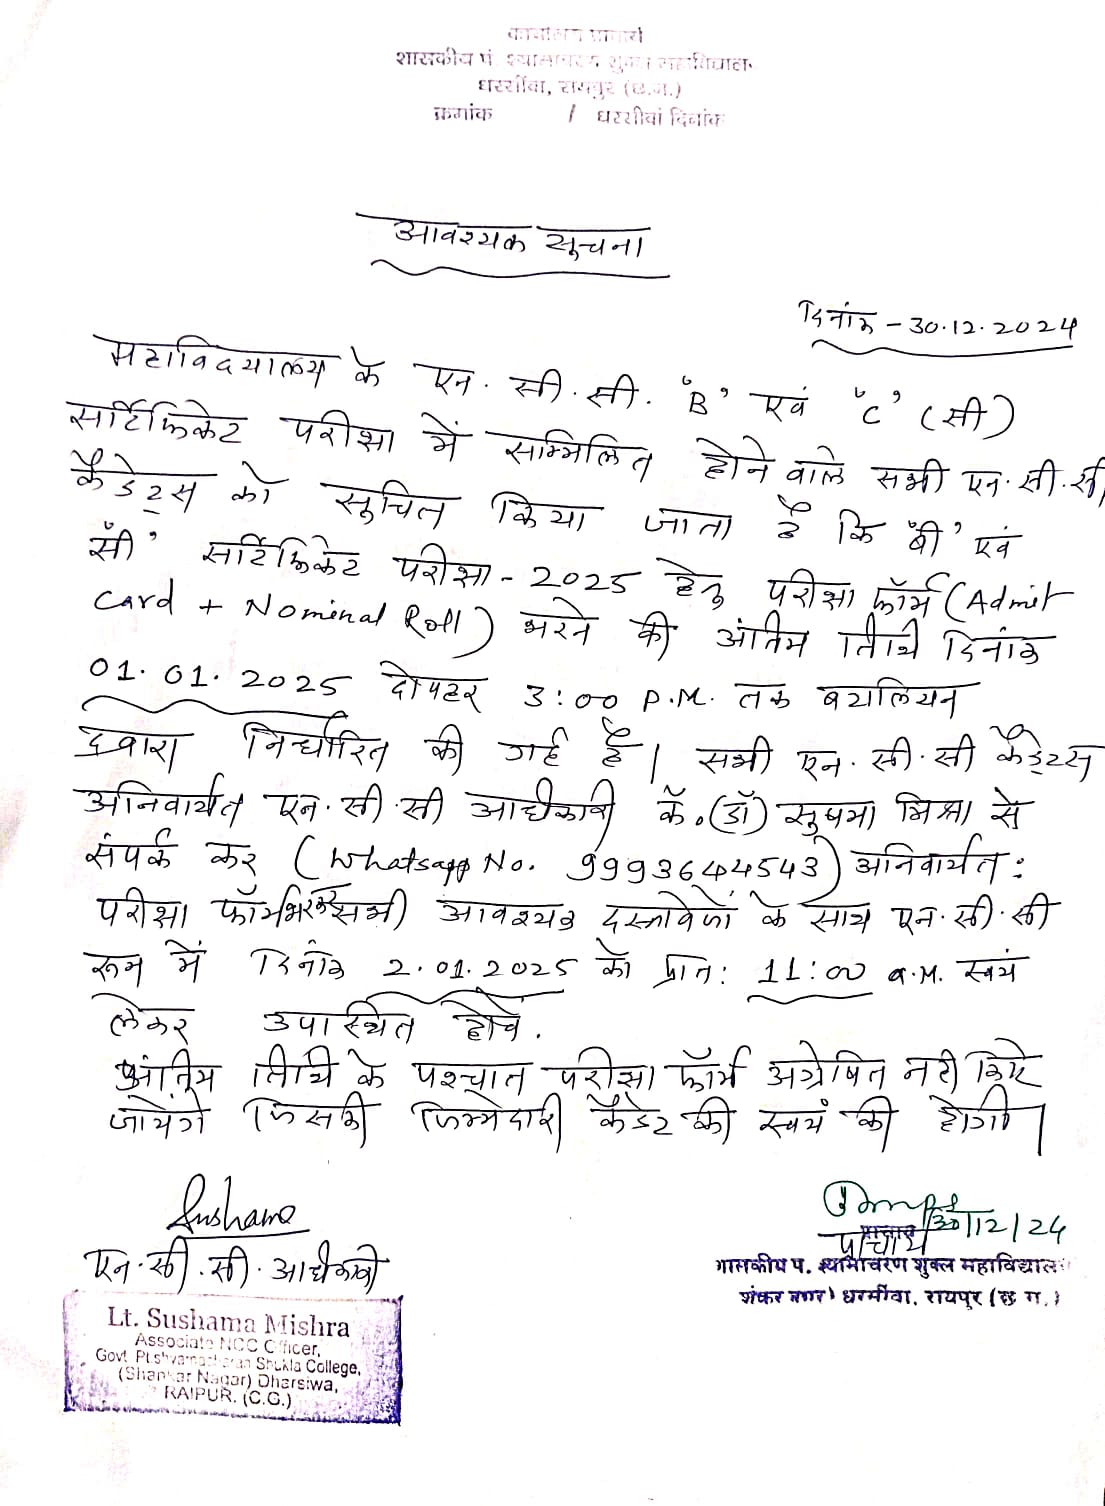 कार्यालय प्राचार्य
शासकीय पं. श्यामाचरण शुक्ल महाविद्यालय
धरसींवा, रायपुर (छ.ग.)
क्रमांक / धरसींवां दिनांक
आवश्यक सूचना
दिनांक - 30.12.2024
महाविद्यालय के एन. सी. सी. "B" एवं "C" (सी)
सर्टिफिकेट परीक्षा में सम्मिलित होने वाले सभी एन.सी.सी.
कैडेट्स को सूचित किया जाता है कि "बी" एवं
"सी" सर्टिफिकेट परीक्षा - 2025 हेतु परीक्षा फॉर्म (Admit
Card + Nominal Roll) भरने की अंतिम तिथि दिनांक
01.01.2025 दोपहर 3:00 P.M. तक बटालियन
द्वारा निर्धारित की गई है। सभी एन.सी.सी कैडेट्स
अनिवार्यत एन.सी.सी अधिकारी कै.(डॉ) सुषमा मिश्रा से
संपर्क कर (Whatsapp No. 9993644543) अनिवार्यत:
परीक्षा फॉर्म भरकर सभी आवश्यक दस्तावेजों के साथ एन.सी.सी
रूम में दिनांक 2.01.2025 को प्रात: 11:00 a.m. स्वयं
लेकर उपस्थित होवें.
अंतिम तिथि के पश्चात परीक्षा फॉर्म अग्रेषित नही किए
जायेंगे जिसकी जिम्मेदारी कैडेट की स्वयं की होगी।
Sushama
30/12/24
एन.सी.सी. अधिकारी
प्राचार्य
प्राचार्य
शासकीय पं. श्यामाचरण शुक्ल महाविद्यालय
(शंकर नगर) धरसींवा, रायपुर (छ.ग.)
Lt. Sushama Mishra
Associate NCC Officer,
Govt. Pt. Shyamacharan Shukla College,
(Shankar Nagar) Dharsiwa,
RAIPUR. (C.G.)